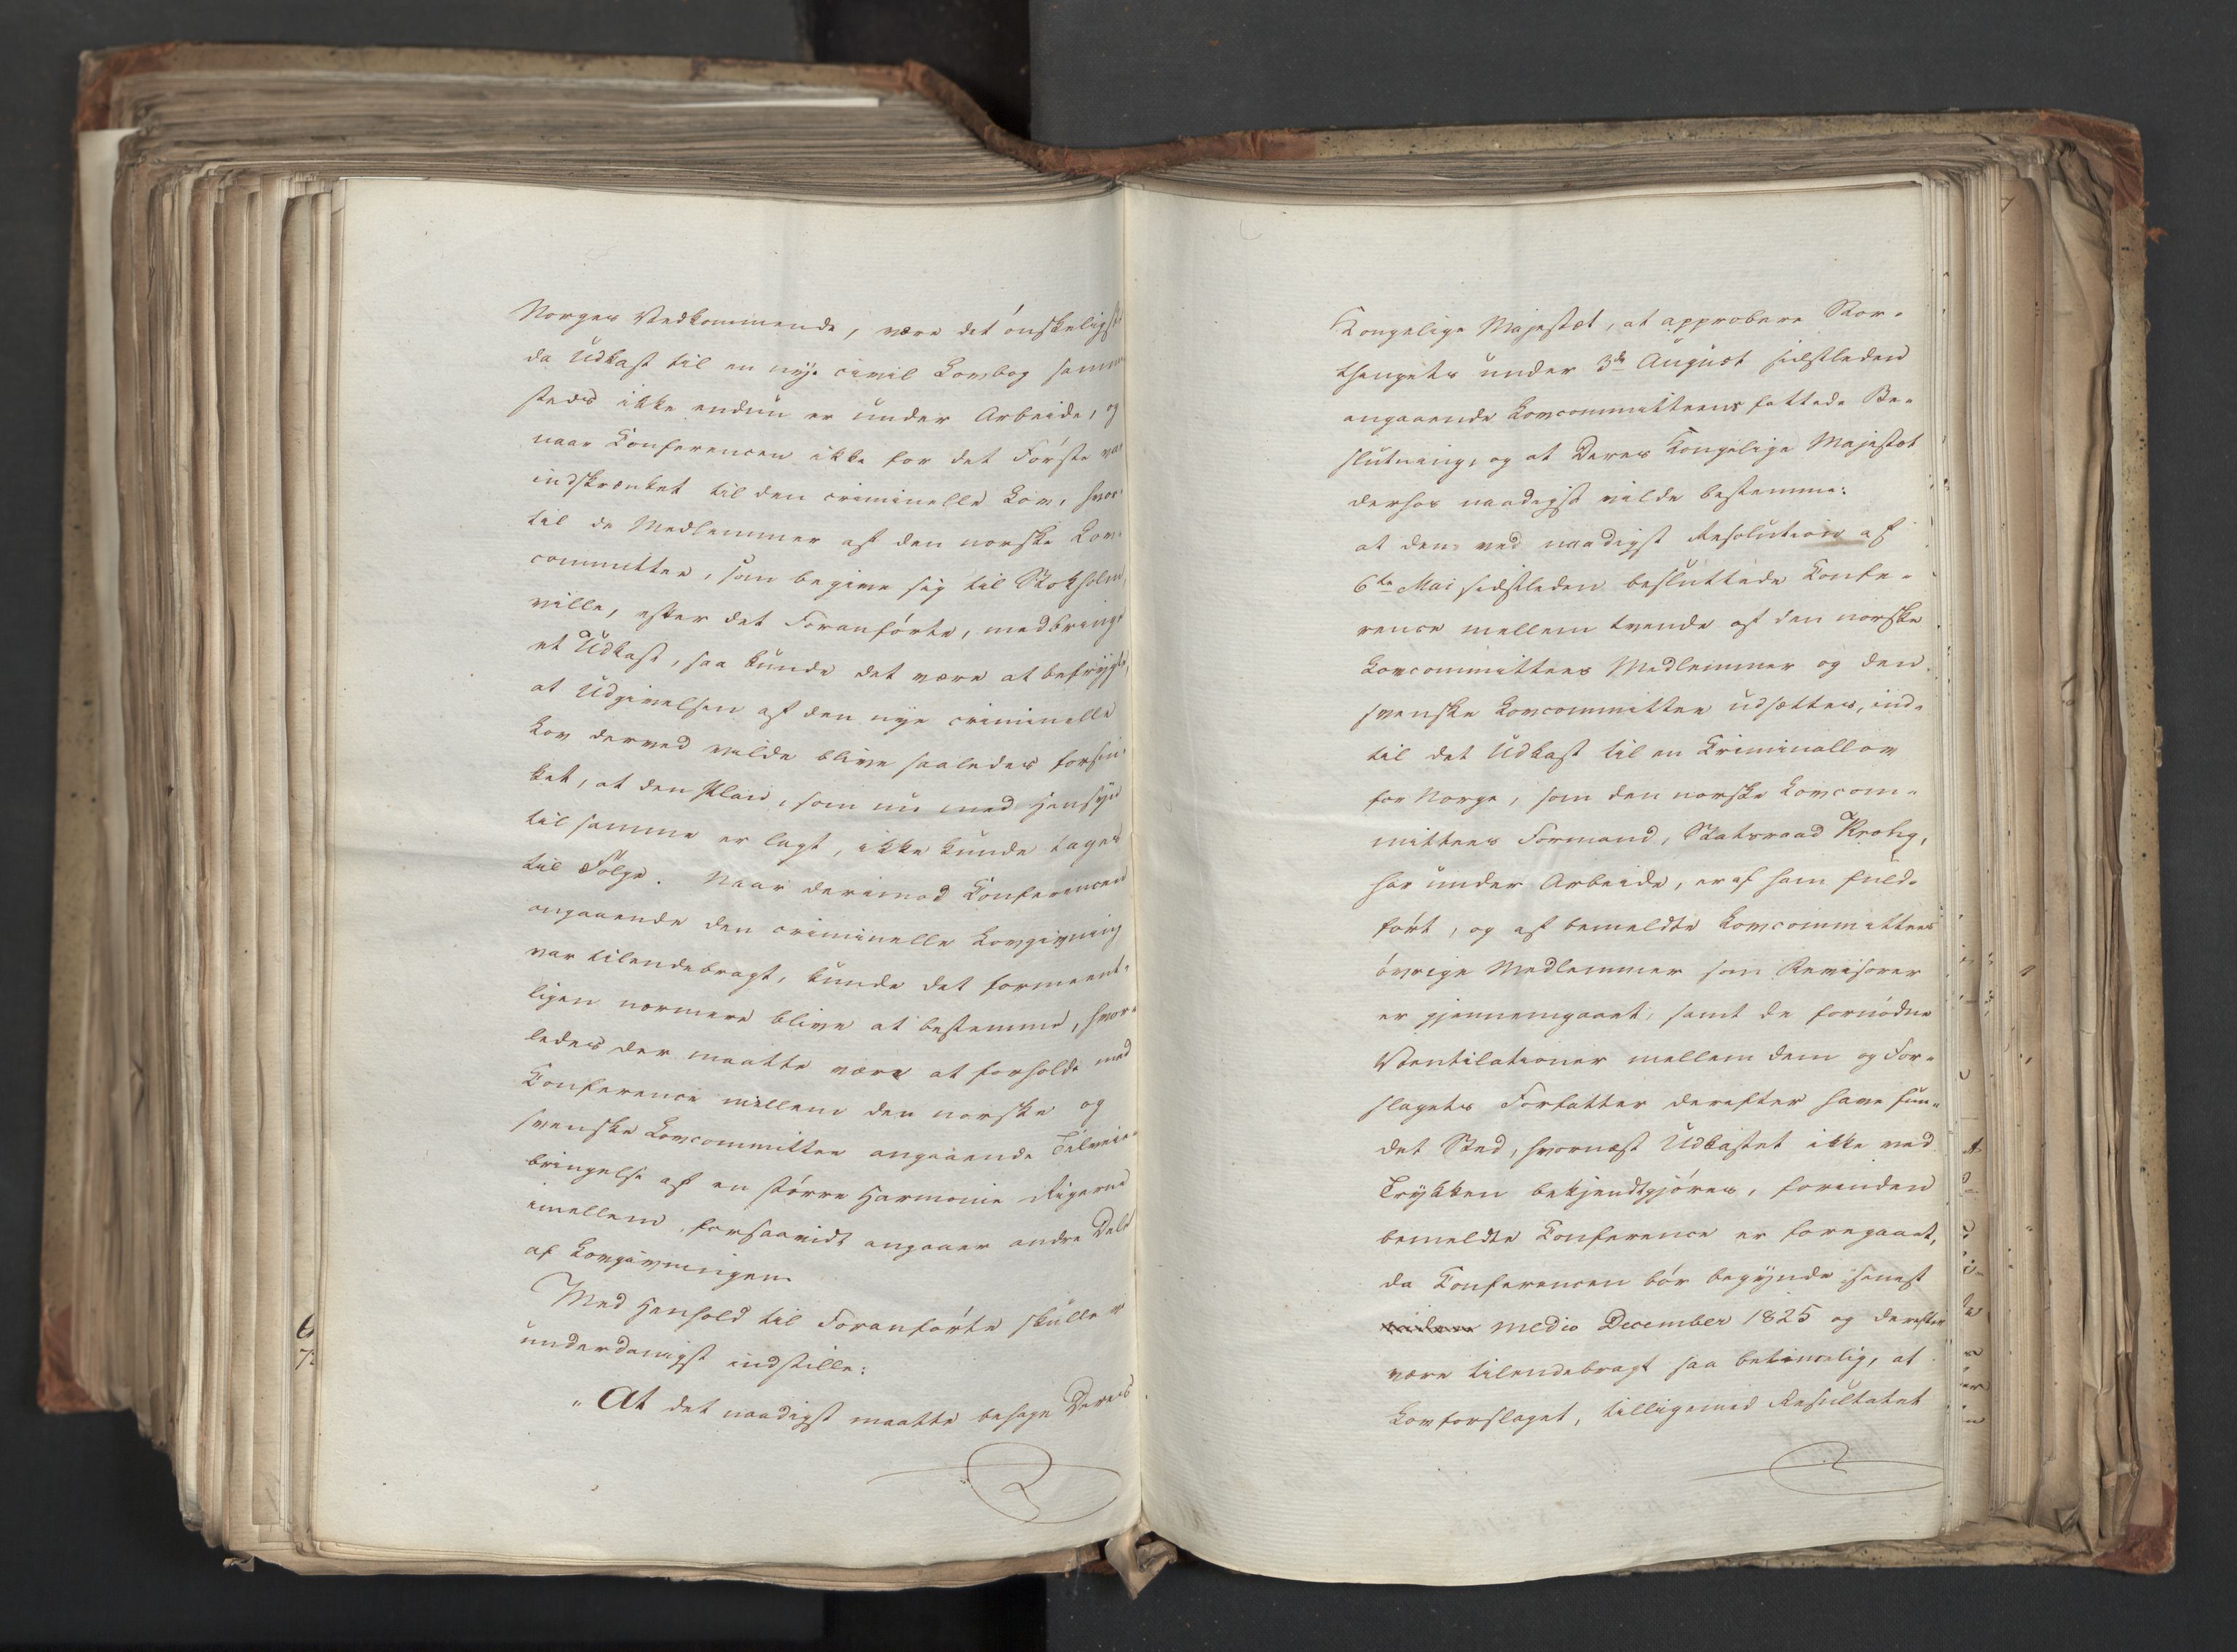 Norges Vedkommende, være det ønskeligst
da Udkast til en nye civil Lovbog samme
steds ikke endnu er under Arbeide, og
naar Conferencen ikke for det Første var
indskrænket til den criminelle Lov, hvor-
til de Medlemmer af den norske Lov-
committee, som begive sig til Stokholm
ville, efter det Foranførte, medbringe
et Udkast, saa kunde det være at befrygte,
at Udgivelsen af den nye criminelle
Lov derved vilde blive saaledes forsin-
ket, at den Plan, som nu med Hensyn
til samme er lagt, ikke kunde tages
til Følge. Naar derimod Conferencen
angaaende den criminelle Lovgivning
var tilendebragt, kunde det formeent-
ligen nærmere blive at bestemme, hvor-
ledes der maatte være at forholde med
Conference mellem den norske og
svenske Lovcommittee angaaende Tilveie-
bringelse af en større Harmonie Rigerne
imellem, forsaavidt angaaer andre Dele
af Lovgivningen.
Med Henhold til Foranførte skulle vi
underdanigst indstille:
"At det naadigst maatte behage Deres
Kongelige Majestæt, at approbere Stor-
thingets under 3de August sidstleden
angaaende Lovcommitteens fattede Be-
slutning, og at Deres Kongelige Majestæt
derhos naadigst vilde bestemme:
at den ved naadigst Resolution af
6te Mai sidstleden besluttede Confe-
rence mellem tvende af den norske
Lovcommittees Medlemmer og den
svenske Lovcommittee udsættes, ind-
til det Udkast til en Criminallov
for Norge, som den norske Lovcom-
mittees Formand, Statsraad Krohg,
har under Arbeide, er af ham fuld-
ført, og af bemeldte Lovcommittees
øvrige Medlemmer som Revisorer
er gjennemgaaet, samt de fornødne
Ventilationer mellem dem og For-
slagets Forfatter derefter have fun-
det Sted, hvornæst Udkastet ikke ved
Trykken bekjendtgjøres, forinden
bemeldte Conference er foregaaet,
da Conferencen bør begynde senest
medio December 1825 og derefter
være tilendebragt saa betimelig, at
Lovforslaget, tilligemed Resultatet